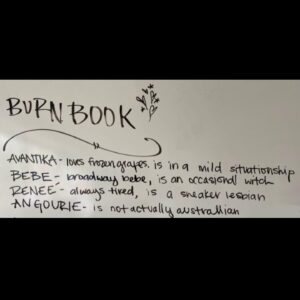 BURN BOOK
AVANTIKA - loves frozen grapes. is in a mild situationship
BEBE - broadway bebe, is an occasional witch
RENEE - always tired, is a sneaker lesbian
ANGOURIE - is not actually australian